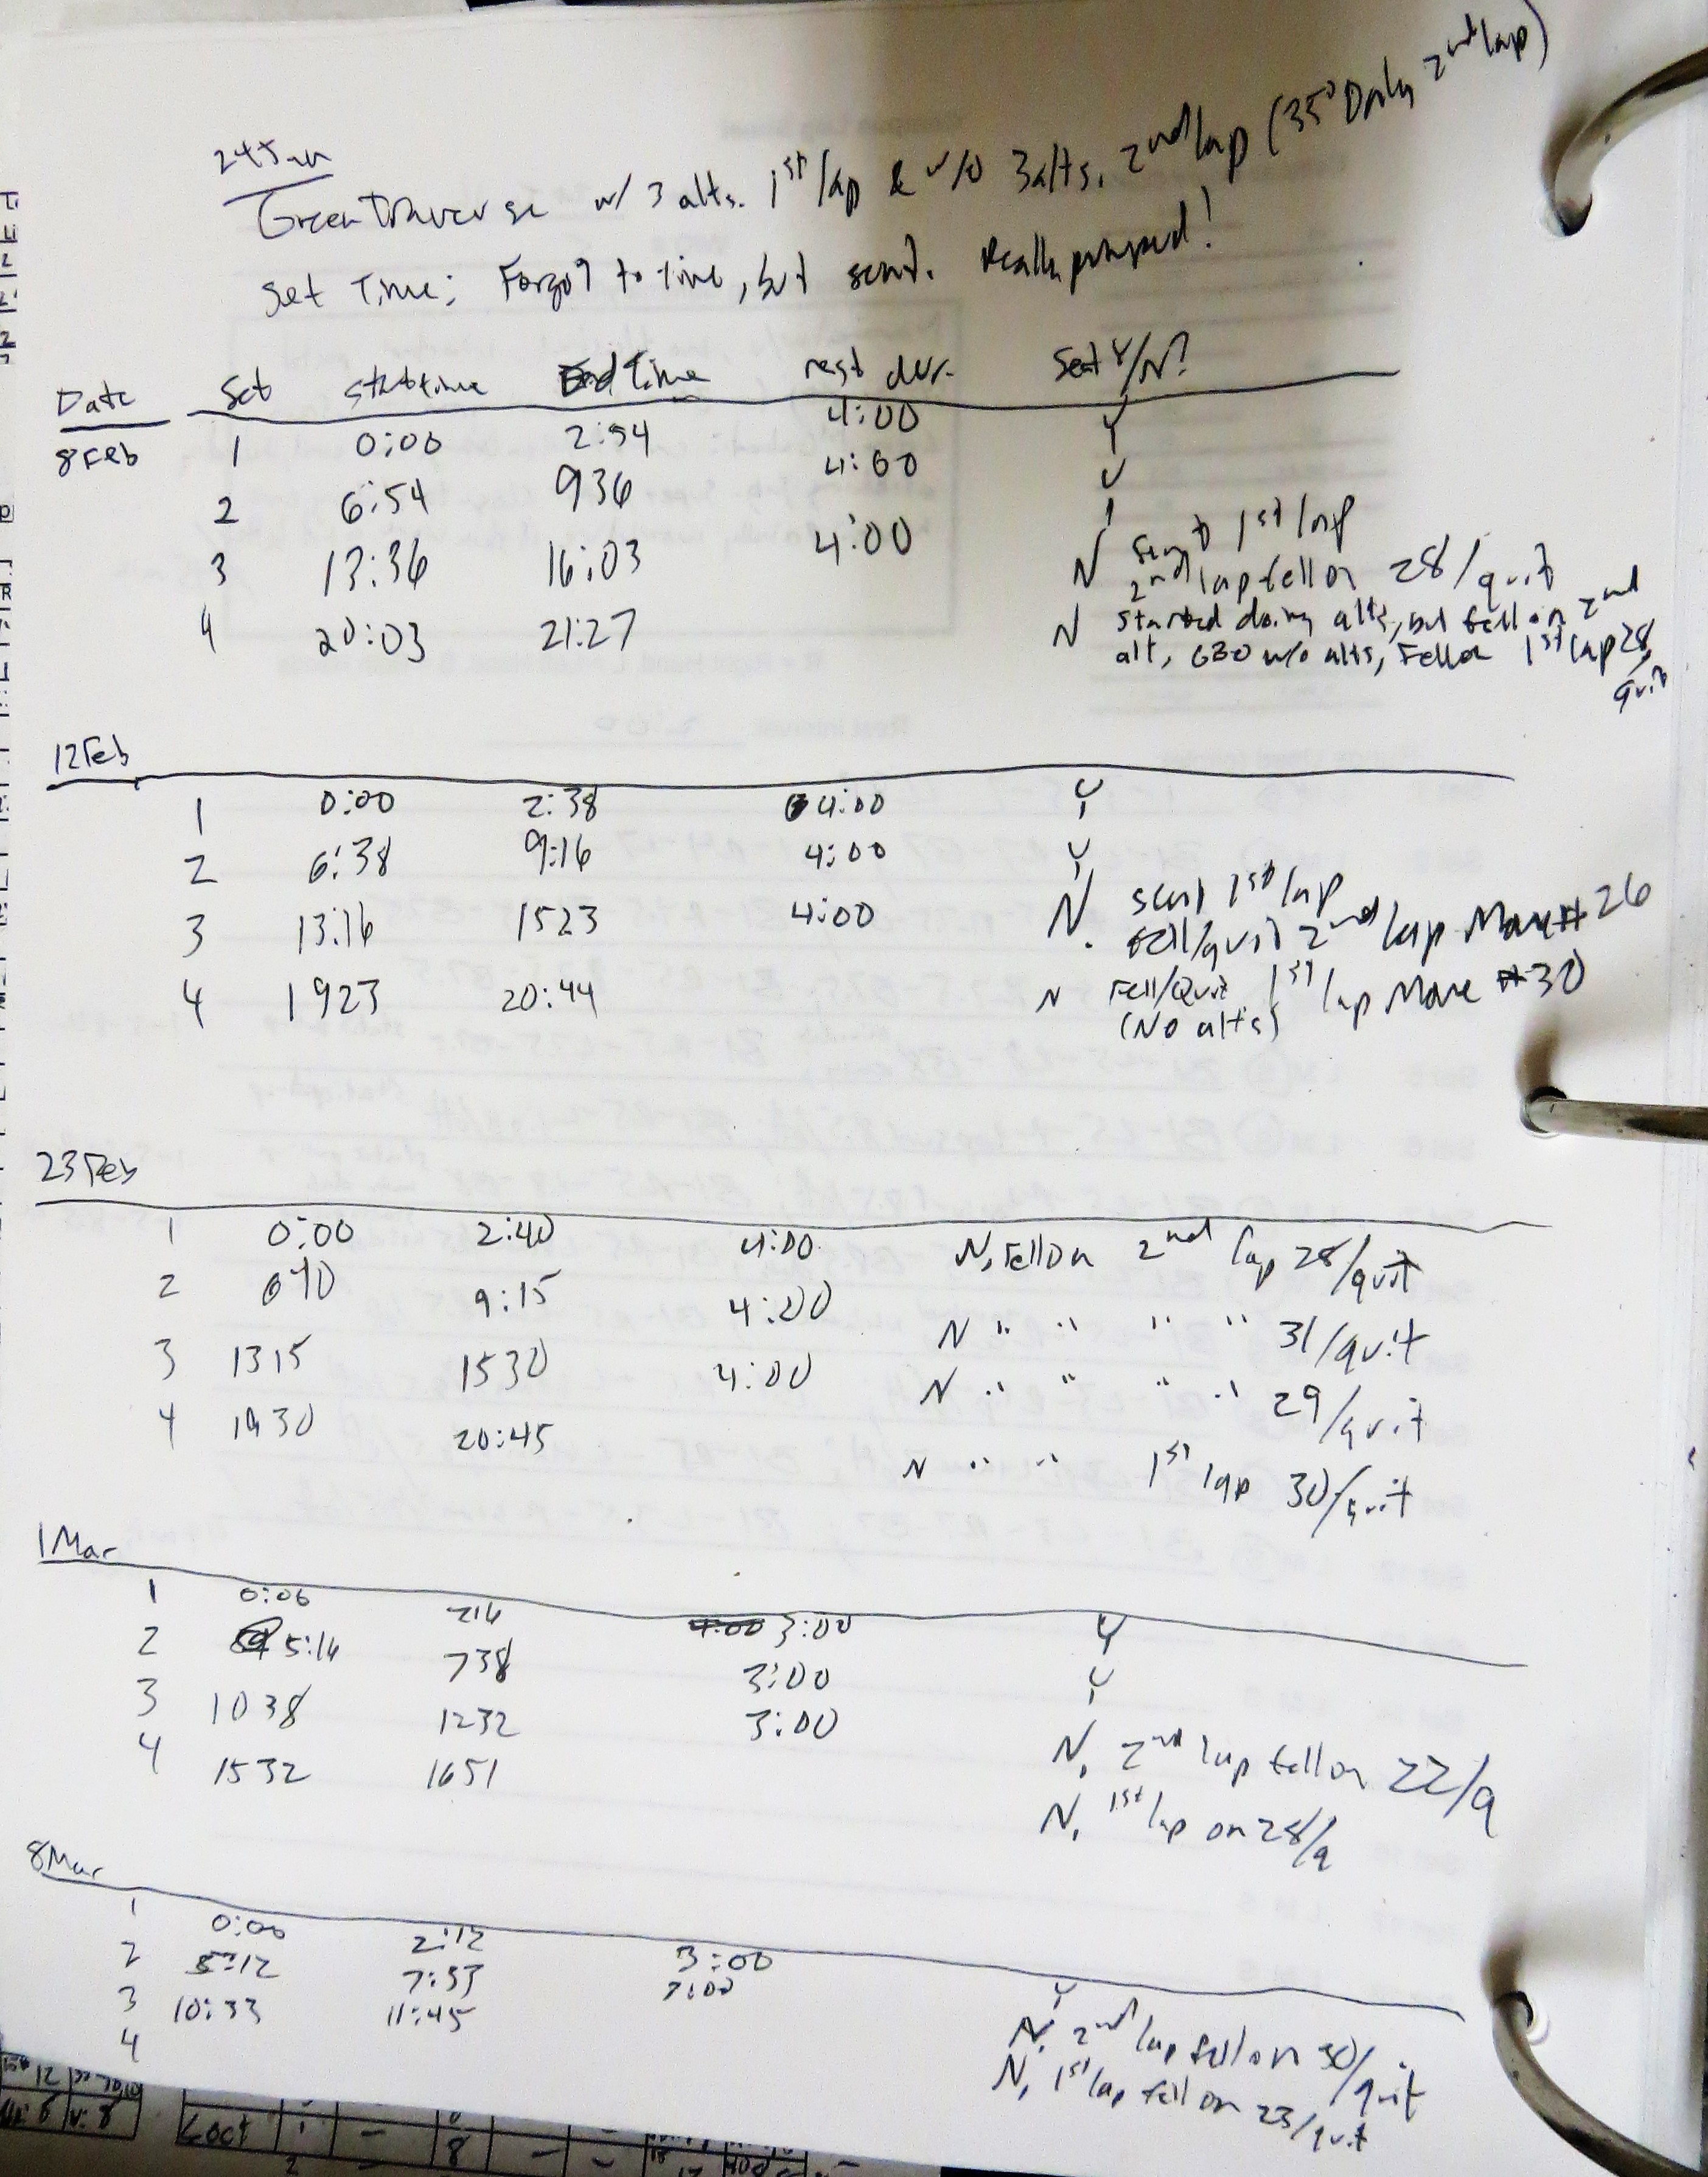 24Jan
Green Traverse w/ 3 alts. 1st lap & w/o 3 alts. 2nd lap (35° Only 2nd lap)
Set Time: Forgot to time, but sent. Really pumped!
Date Set start time End Time rest dur. Sent Y/N?
8 Feb 1 0:00 2:54 4:00 Y
2 6:54 936 4:00 Y
3 13:36 16:03 4:00 N sent 1st lap
2nd lap fell on 28/quit
4 20:03 21:27 N started doing alts, but fell on 2nd
alt, GBO w/o alts, Fell on 1st lap 28/
quit
12 Feb
1 0:00 2:38 4:00 Y
2 6:38 9:16 4:00 Y
3 13:16 1523 4:00 N. sent 1st lap
fell/quit 2nd lap Move #26
4 1923 20:44 N Fell/Quit 1st lap Move #30
(No alts)
23 Feb
1 0:00 2:40 4:00 N, Fell on 2nd lap 28/quit
2 640 9:15 4:00 N " " " " 31/quit
3 1315 1530 4:00 N " " " " 29/quit
4 1930 20:45 N " " 1st lap 30/quit
1 Mar
1 0:00 216 4:00 3:00 Y
2 5:16 738 3:00 Y
3 1038 1232 3:00 N, 2nd lap fell on 22/q
4 1532 1651 N, 1st lap on 28/q
8 Mar
1 0:00 2:12 3:00 Y
2 5:12 7:33 3:00 N, 2nd lap fell on 30/quit
3 10:33 11:45 N, 1st lap fell on 23/quit
4